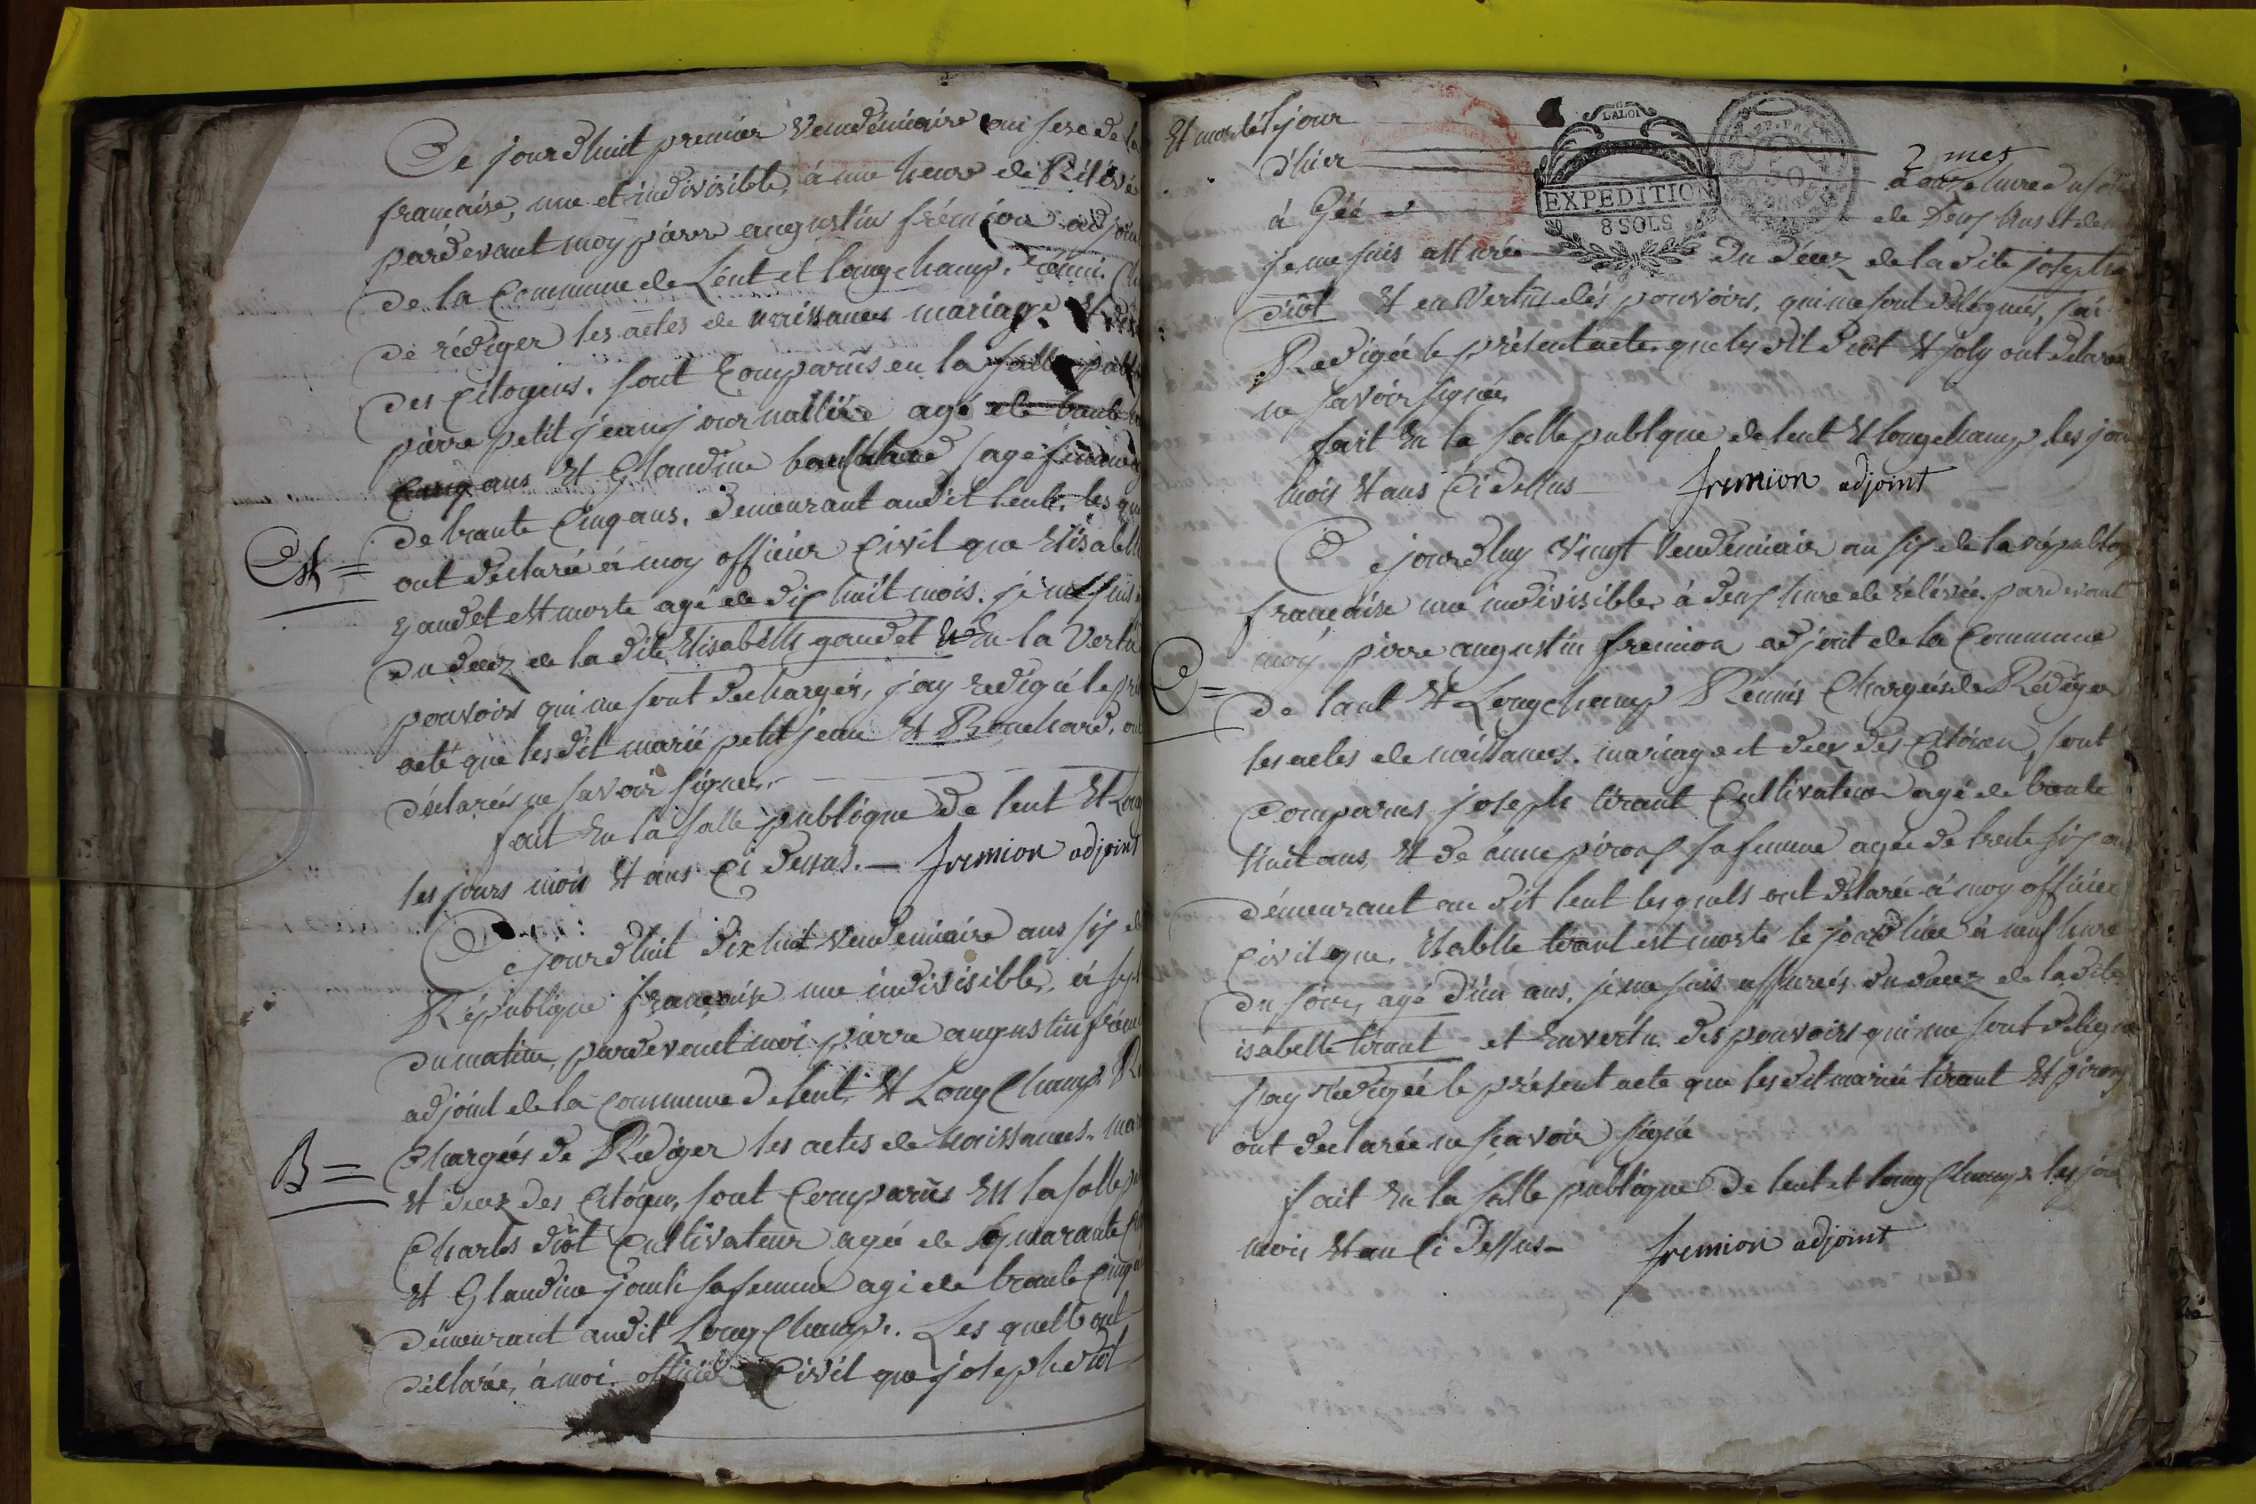 Ce jourd'huit premier Vendémiaire an sixe de la
française, une et indivisible, à une heure de Rélévé
pardevant moy pierre augustin frémion adjoin
de la Commune de Lent et Longchamp, Réuni. Ch
de rédiger les actes de naissances mariage et des
des Citoyens. sont Comparus en la salle publ
pierre petit jean journallier agé de trante
Cinq ans Et Glaudine bouchard sa femme
de trante Cinq ans. demeurant audit lent. les qu
ont déclarée à moy officier Civil que Elisabell
gaudet est morte agé de dix huit mois. je me suis
du deez de la dite Elisabelle gaudet En la Vertu
pouvoirs qui me sont dechargés, j'ay redigéé le pr
acte que lesdit marié petit jean Et Bouchard, on
déclarés ne savoir signer.
fait En la salle publique de lent Et Long
les jours mois Et ans Ci dessus. — fremion adjoint
Est =
Ce jourd'huit dix huit Vendemiaire ans six de
République française une indivisible, à sept
du matin, pardevant moi pierre augustin frémi
adjoint de la Commune de lent, Et Long Champ Ré
Chargéés de Rédiger les actes de naissances. mar
Et deez des Citoyen, sont Comparus En la salle pu
Charles diot Cultivateur agéé de quarante
Et Glaudine janli sa femme agé de trante Cinq
démeurant audit Long Champ. Les quells ont
déclarée, à moi officié Civil que joseph diot
B =
Et morte le jour
d'hier 2 mes
à onze heure du soir
à Géé de deux ans et de
je me suis assurée du décez de la dite joseph
diot Et en Vertus des pouvoirs, qui me sont delegués, j'ai
Redigéé le présent acte que les dit diot Et joly ont déclarée
ne savoir signée,
LA LOI
EXPEDITION
8 SOLS
fait En la salle publique de lent Et longchamp, les jou
mois Et ans Ci dessus — fremion adjoint
Ce jourd'huy vingt Vendemiaire an six de la républiq
française une indivisible à deux heure de rélévée pardevant
moy pierre augustin fremion adjoint de la Commune
de lent Et Longchamp Réunis Chargéés de Rédiger
les actes de naissances. mariage et deez des Citoien, sont
Comparus joseph tirant Cultivateur agé de trente
huit ans, Et de anne piroux sa femme agée de trente six a
démeurant au dit lent lesquels ont déclarée à moy officier
Civil que, Isabelle tirant est morte le jour d'hier à neuf heure
du soir, agé d'un ans, je me suis assurés du decez de la dite
isabelle tirant et En vertu des pouvoirs qui me sont délégué
j'ay rédigéé le présent acte que les dit mariée tirant Et piroux
ont déclarée ne sçavoir signée
fait En la salle publique de lent et Long Champ. les jour
mois Et an Ci dessus — fremion adjoint
C =